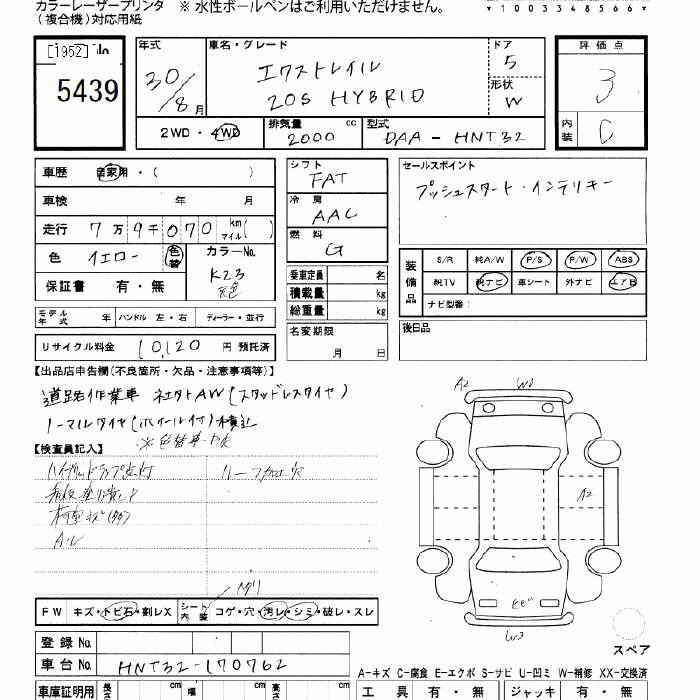 カラーレーザープリンタ ※ 水性ボールペンはご利用いただけません。
(複合機)対応用紙
*1003348566*
[1952] No
5439
年式
30/8月
車名・グレード
エクストレイル
20S HYBRID
ドア
5
形状
W
2WD・4WD
排気量
2000 cc
型式
DAA-HNT32
評価点
3
内装
C
車歴 自家用・( )
車検 年 月
走行 7万9千070 km マイル( )
色 イエロー 色替
カラーNo.
K23
保証書 有・無
モデル年式 年 ハンドル 左・右 ディーラー・並行
リサイクル料金 10,120 円 預託済
シフト
FAT
冷房
AAC
燃料
G
乗車定員 名
積載量 kg
総重量 kg
名変期限
月 日
セールスポイント
プッシュスタート・インテリキー
装備品
S/R 純A/W P/S P/W ABS
純TV 純ナビ 革シート 外ナビ エアB
ナビ型番:
後日品
【出品店申告欄(不良箇所・欠品・注意事項等)】
道路作業車 社外AW(スタッドレスタイヤ)
ノーマルタイヤ(ホイール付)積込
【検査員記入】
ルーフ加工穴
A2
W2
A2
W3
FW キズ・トビ石・割レX
シート内装 コゲ・穴・汚レ・シミ・破レ・スレ
登録 No.
車台 No. HNT32-170762
スペア
A-キズ C-腐食 E-エクボ S-サビ U-凹ミ W-補修 XX-交換済
車庫証明用 長さ cm 幅 cm 高さ cm
工具 有・無 ジャッキ 有・無